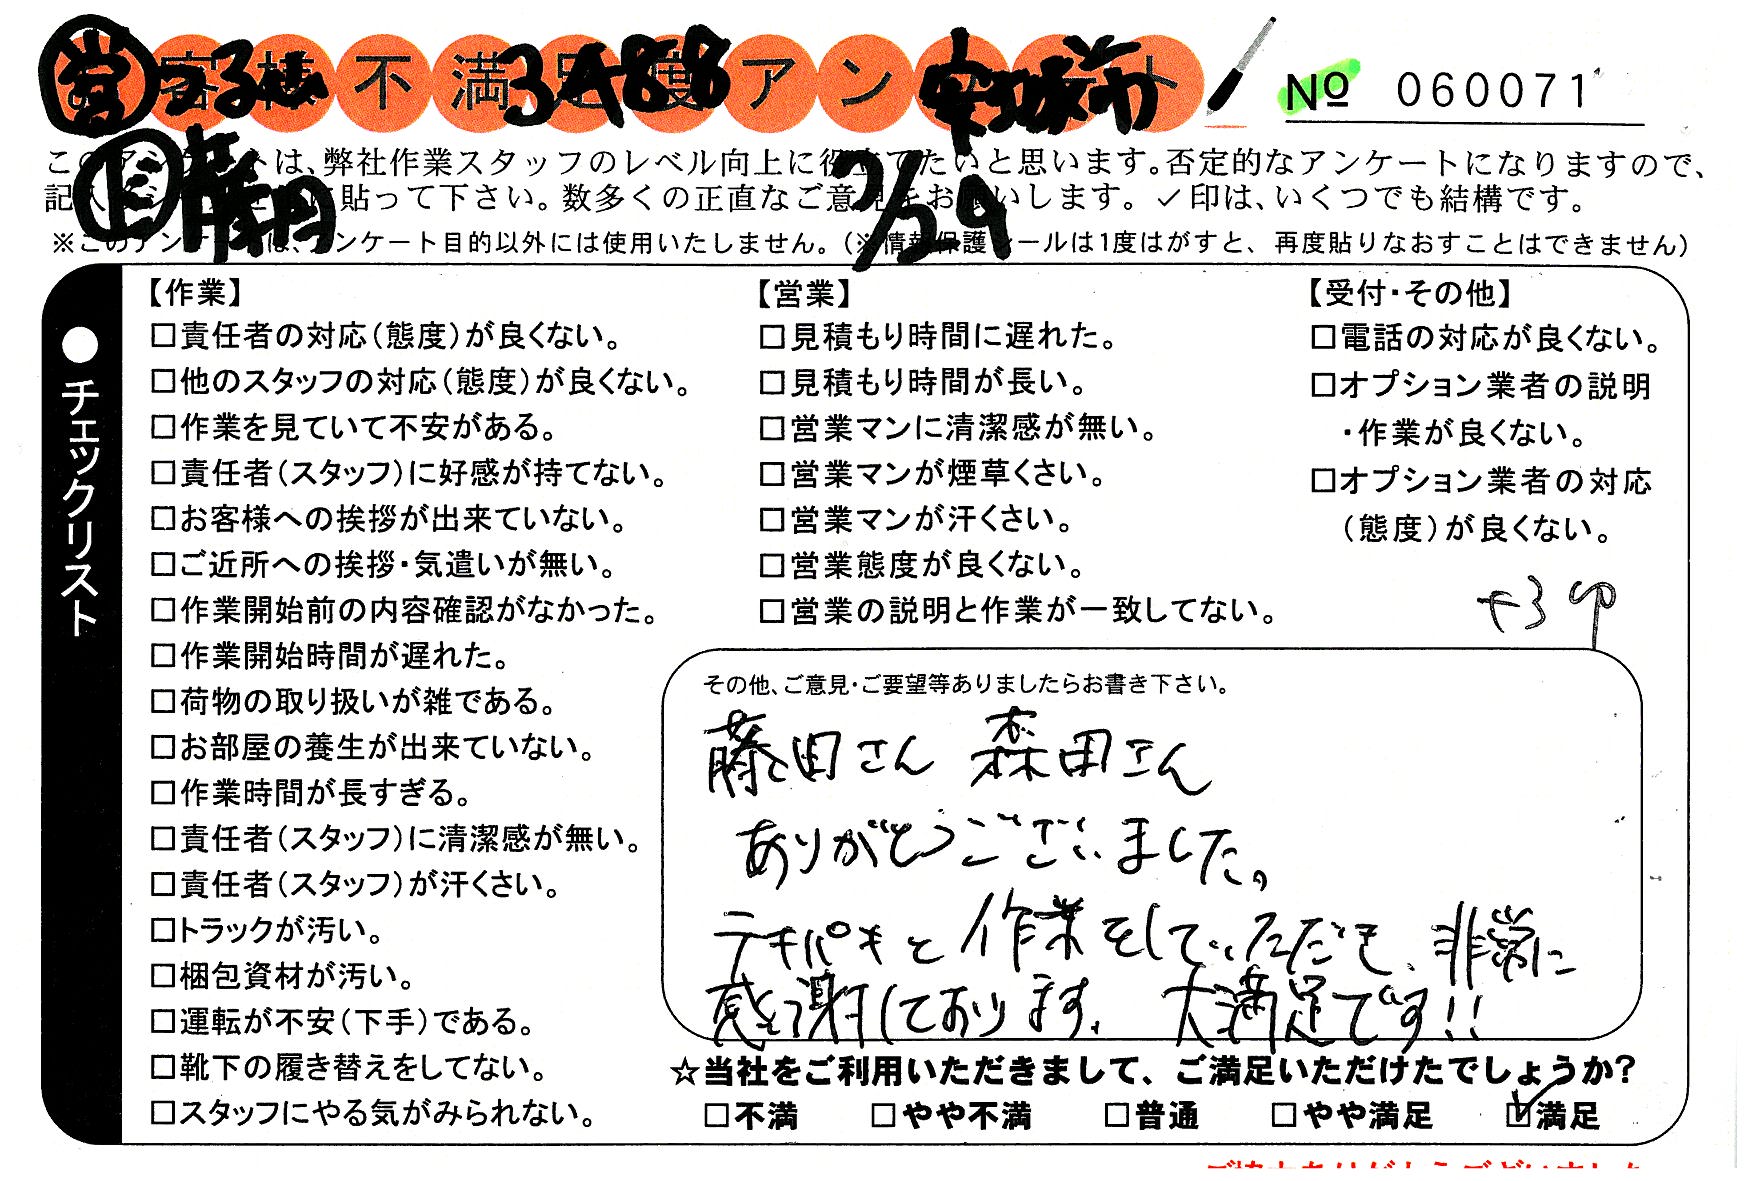 お客様不満足度アンケート
No 060071
安城市
7/29
藤田
このアンケートは、弊社作業スタッフのレベル向上に役立てたいと思います。否定的なアンケートになりますので、
に貼って下さい。数多くの正直なご意見をお願いします。✓印は、いくつでも結構です。
※このアンケートは、アンケート目的以外には使用いたしません。（※情報保護シールは1度はがすと、再度貼りなおすことはできません）
●チェックリスト
【作業】
□責任者の対応（態度）が良くない。
□他のスタッフの対応（態度）が良くない。
□作業を見ていて不安がある。
□責任者（スタッフ）に好感が持てない。
□お客様への挨拶が出来ていない。
□ご近所への挨拶・気遣いが無い。
□作業開始前の内容確認がなかった。
□作業開始時間が遅れた。
□荷物の取り扱いが雑である。
□お部屋の養生が出来ていない。
□作業時間が長すぎる。
□責任者（スタッフ）に清潔感が無い。
□責任者（スタッフ）が汗くさい。
□トラックが汚い。
□梱包資材が汚い。
□運転が不安（下手）である。
□靴下の履き替えをしてない。
□スタッフにやる気がみられない。
【営業】
□見積もり時間に遅れた。
□見積もり時間が長い。
□営業マンに清潔感が無い。
□営業マンが煙草くさい。
□営業マンが汗くさい。
□営業態度が良くない。
□営業の説明と作業が一致してない。
【受付・その他】
□電話の対応が良くない。
□オプション業者の説明
・作業が良くない。
□オプション業者の対応
（態度）が良くない。
+3 op
その他、ご意見・ご要望等ありましたらお書き下さい。
藤田さん 森田さん
ありがとうございました。
テキパキと作業をしていただき、非常に
感謝しております。大満足です!!
☆当社をご利用いただきまして、ご満足いただけたでしょうか?
□不満 □やや不満 □普通 □やや満足 ☑満足